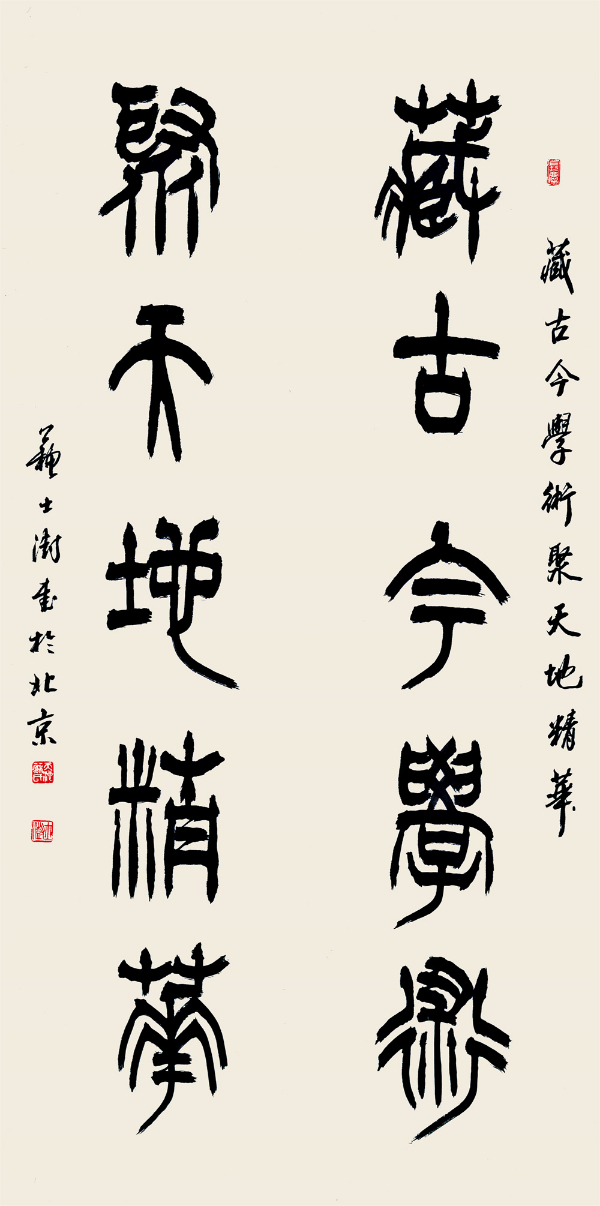 藏古今學術聚天地精華
藏古今學術
聚天地精華
蘇士澍書於北京